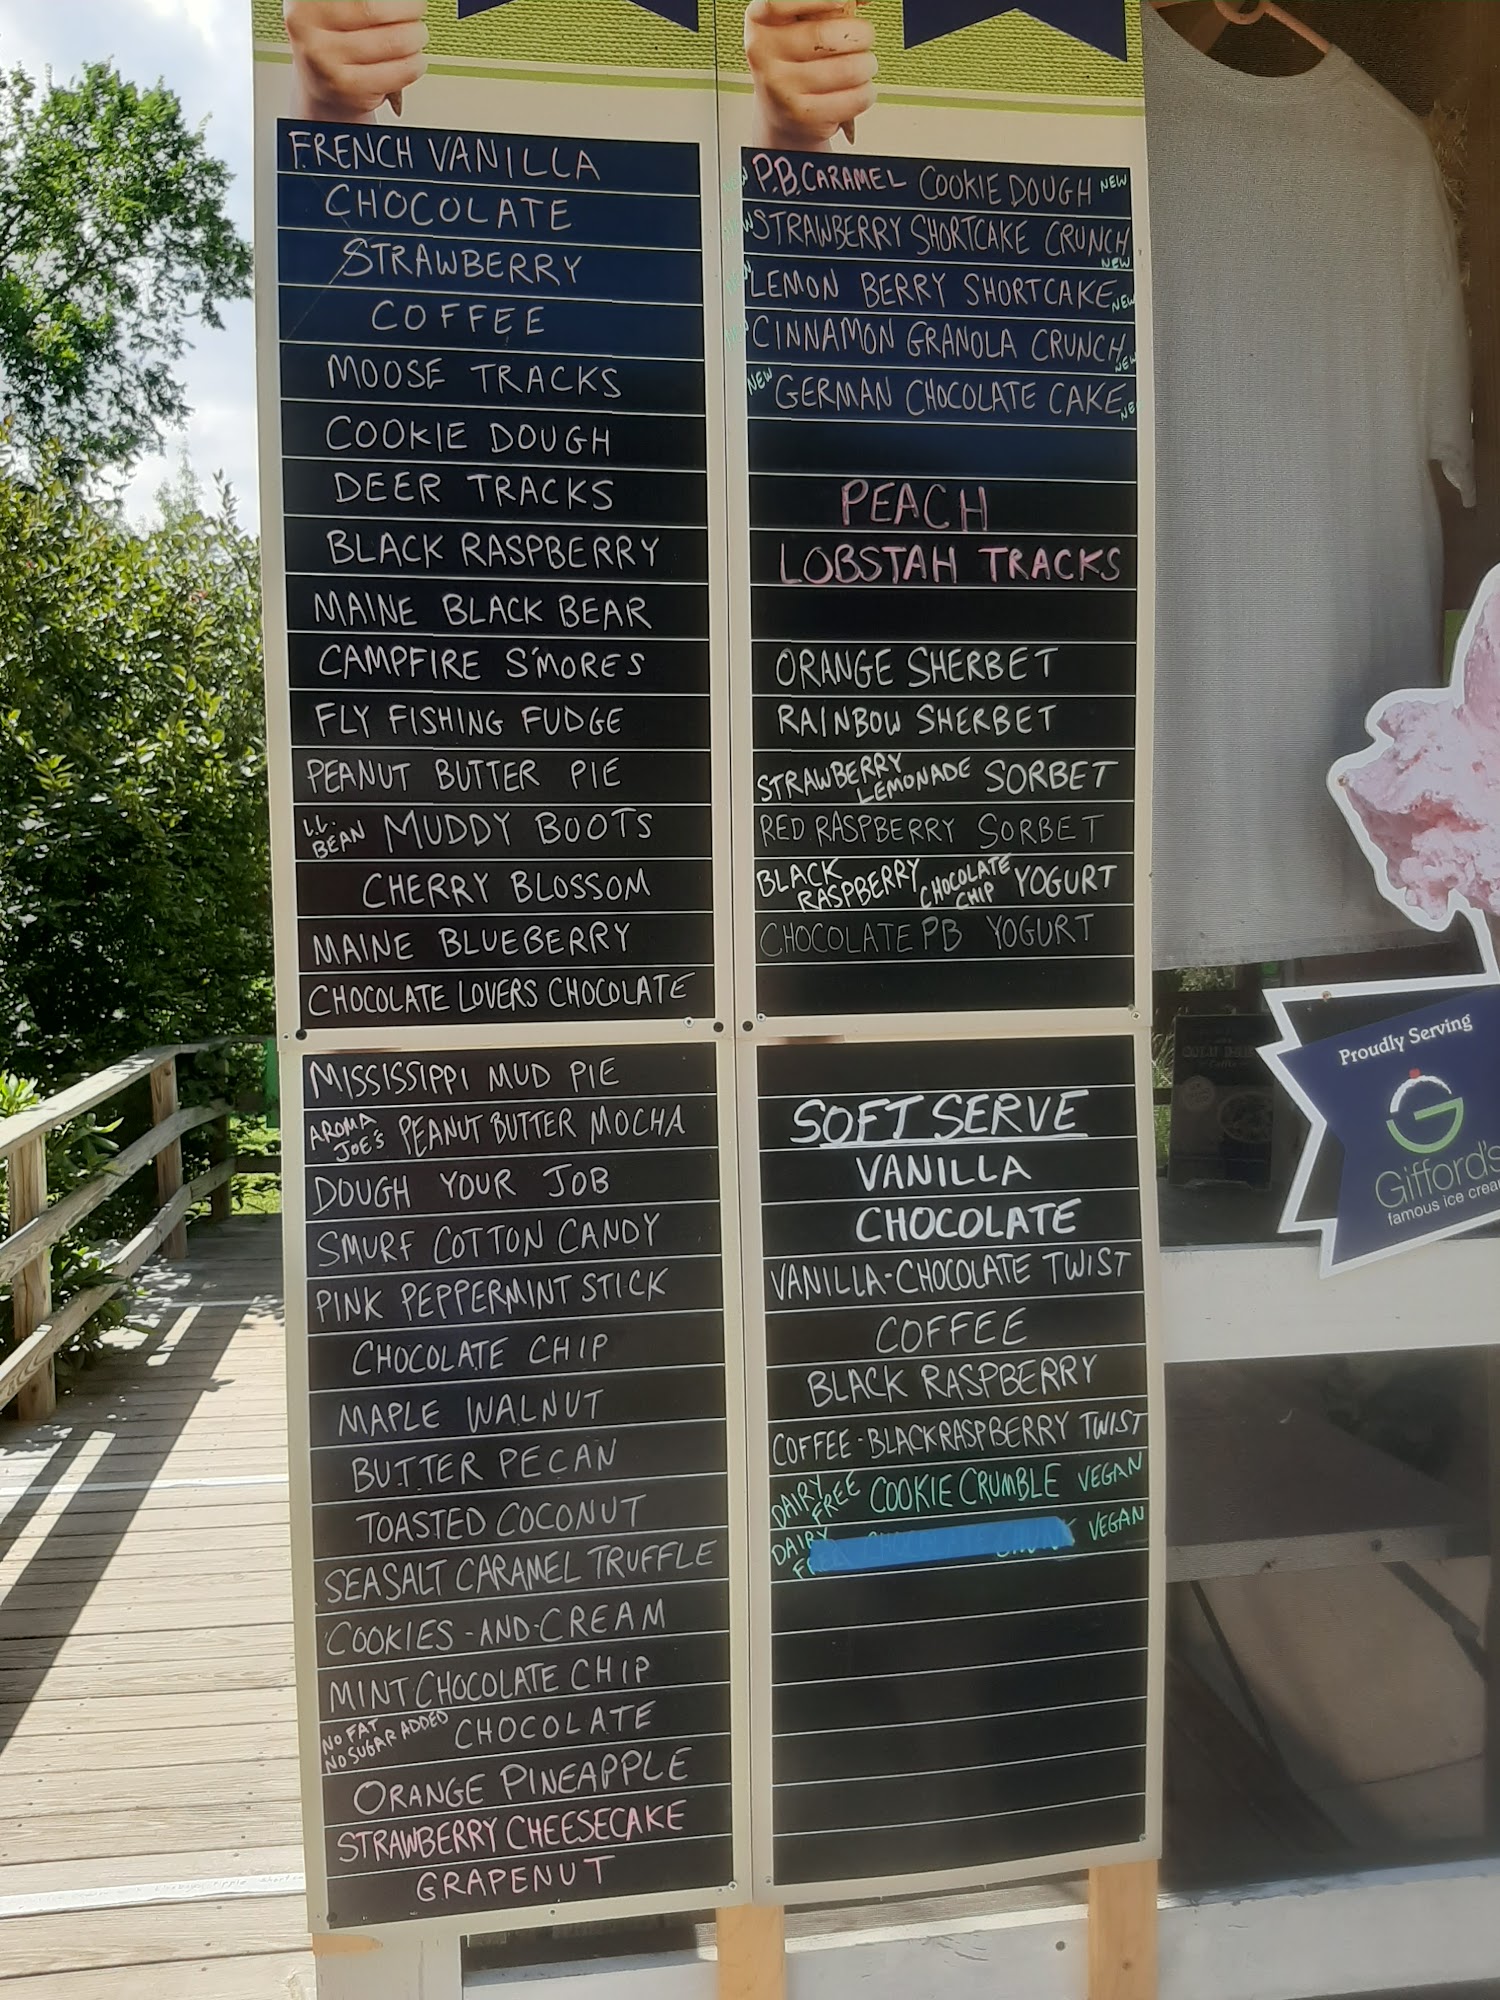 FRENCH VANILLA
CHOCOLATE
STRAWBERRY
COFFEE
MOOSE TRACKS
COOKIE DOUGH
DEER TRACKS
BLACK RASPBERRY
MAINE BLACK BEAR
CAMPFIRE S'MORES
FLY FISHING FUDGE
PEANUT BUTTER PIE
L.L. BEAN MUDDY BOOTS
CHERRY BLOSSOM
MAINE BLUEBERRY
CHOCOLATE LOVERS CHOCOLATE
MISSISSIPPI MUD PIE
AROMA JOE'S PEANUT BUTTER MOCHA
DOUGH YOUR JOB
SMURF COTTON CANDY
PINK PEPPERMINT STICK
CHOCOLATE CHIP
MAPLE WALNUT
BUTTER PECAN
TOASTED COCONUT
SEASALT CARAMEL TRUFFLE
COOKIES-AND-CREAM
MINT CHOCOLATE CHIP
NO FAT NO SUGAR ADDED CHOCOLATE
ORANGE PINEAPPLE
STRAWBERRY CHEESECAKE
GRAPENUT
NEW P.B. CARAMEL COOKIE DOUGH NEW
NEW STRAWBERRY SHORTCAKE CRUNCH NEW
NEW LEMON BERRY SHORTCAKE NEW
NEW CINNAMON GRANOLA CRUNCH NEW
NEW GERMAN CHOCOLATE CAKE NE
PEACH
LOBSTAH TRACKS
ORANGE SHERBET
RAINBOW SHERBET
STRAWBERRY LEMONADE SORBET
RED RASPBERRY SORBET
BLACK RASPBERRY CHOCOLATE CHIP YOGURT
CHOCOLATE PB YOGURT
SOFT SERVE
VANILLA
CHOCOLATE
VANILLA-CHOCOLATE TWIST
COFFEE
BLACK RASPBERRY
COFFEE-BLACKRASPBERRY TWIST
DAIRY FREE COOKIE CRUMBLE VEGAN
DAIRY VEGAN
Proudly Serving
G
Gifford's
famous ice crea